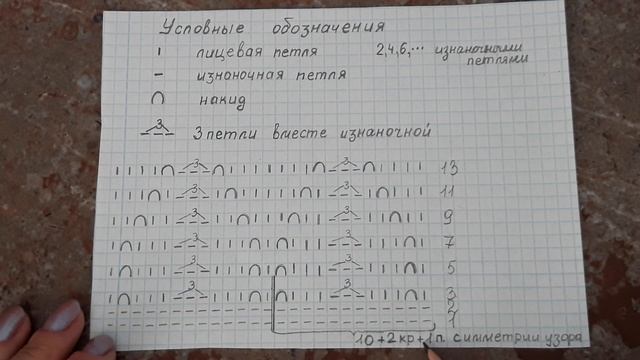 Условные обозначения
лицевая петля 2,4,6,... изнаночными петлями
изнаночная петля
накид
3 3 петли вместе изнаночной
3 3 13
3 3 11
3 3 9
3 3 7
3 3 5
3 3 3
2
1
10+2кр+1п. симметрии узора